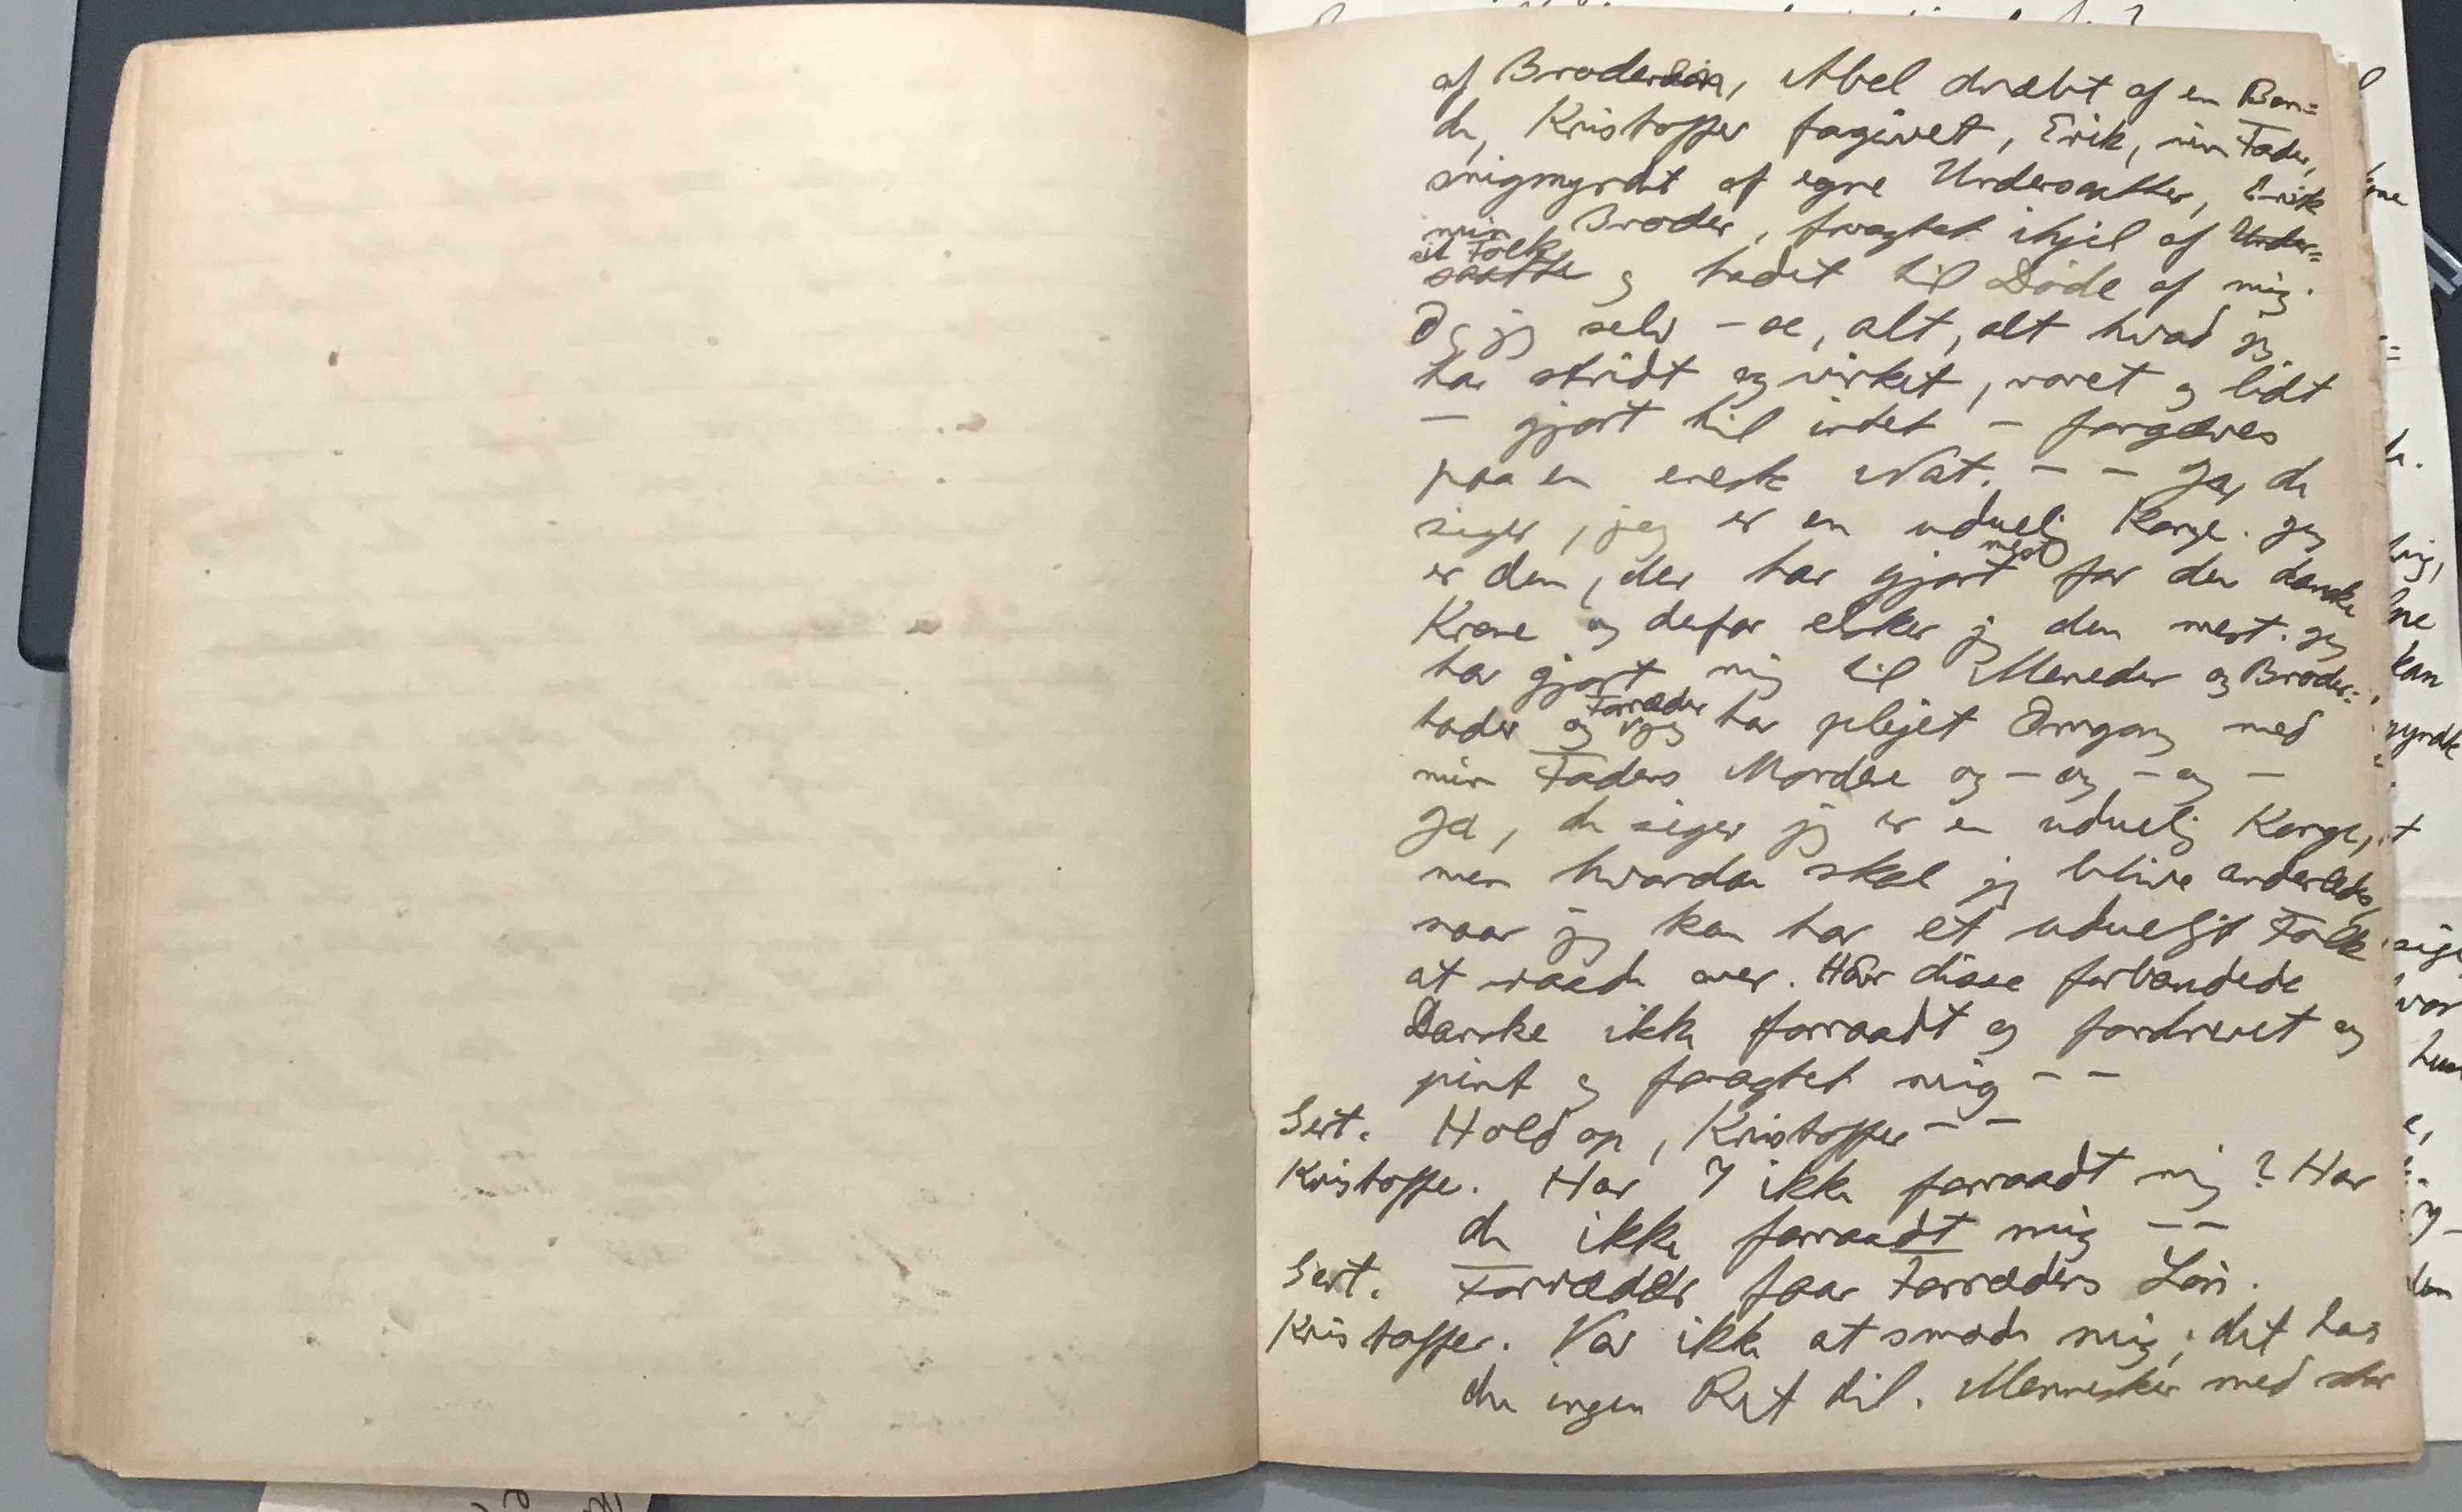 af Broderen, Abel dræbt af en Bon=
de, Kristoffer forgivet, Erik, min Fader,
snigmyrdet af egne Undersaatter, Erik
min Broder, foragtet ihjel af Under=
sit Folk
saatte og hadet til Døde af mig.
Og jeg selv - ae, alt, alt hvad jeg
har stridt og virket, voret og lidt
- gjort til intet - forgæves
paa en eneste Nat. - - Ja, du
siger, jeg er en uduelig Konge. Jeg
mest
er den, der har gjort for den danske
Krone og derfor elsker jeg den mest. Jeg
har gjort mig til Meneder og Broder=
Forræder
hader og jeg har plejet Omgang med
min Faders Mordere og - og - og -
Ja, du siger jeg er en uduelig Konge,
men hvordan skal jeg blive anderledes,
naar jeg kun har et udueligt Folk
at raade over. Har disse forbandede
Danske ikke forraadt og fordrevet og
pint og foragtet mig - -
Gert. Hold op, Kristoffer - -
Kristoffer. Har I ikke forraadt mig? Har
du ikke forraadt mig - -
Gert. Forræder faar Forræders Løn.
Kristoffer. Vov ikke at smæde mig; det har
du ingen Ret til. Mennesker med stor